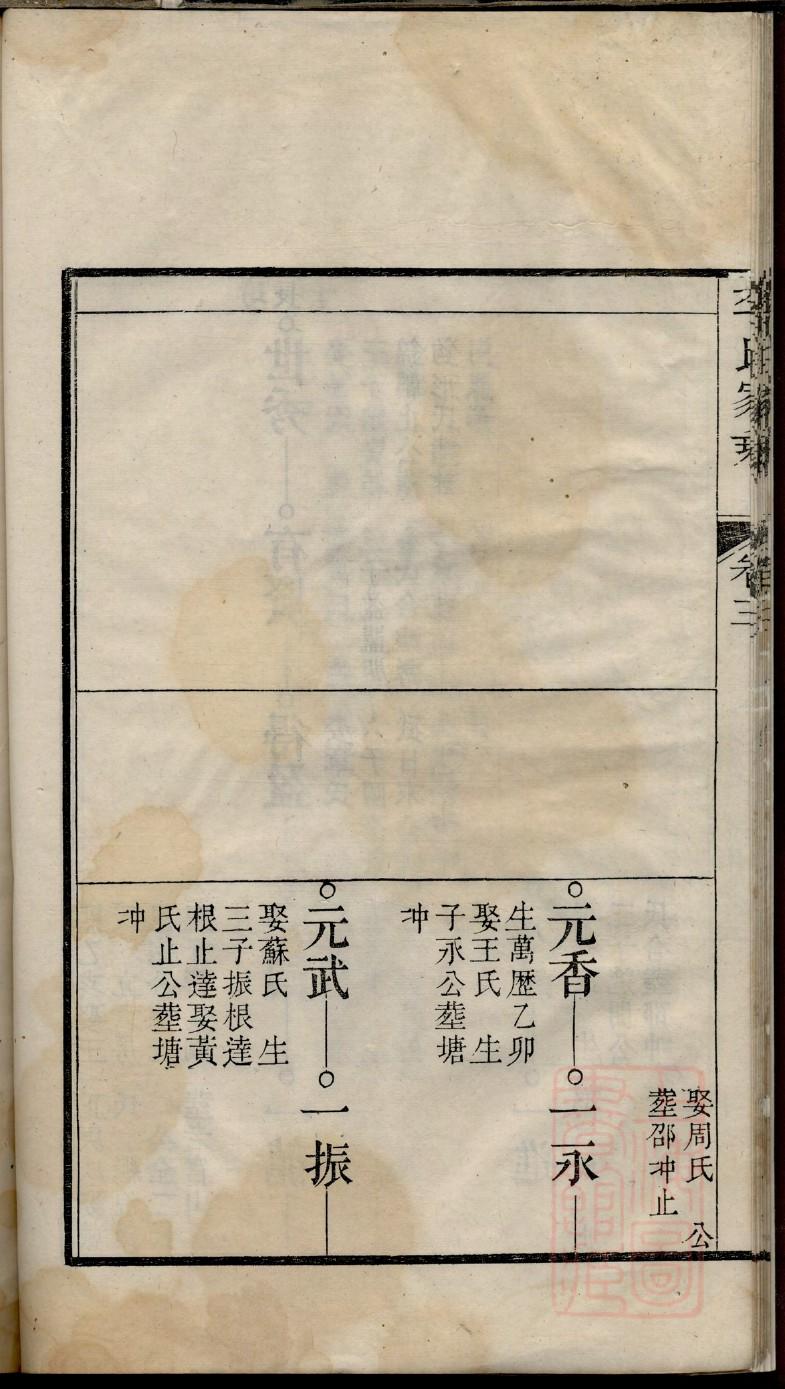 氏家
卷三
娶周氏　公
塟邵冲止
元香
生萬歴乙卯
娶王氏　生
子永公塟塘
冲
一永
元武
娶蘇氏　生
三子振根達
根止達娶黃
氏止公塟塘
冲
一振